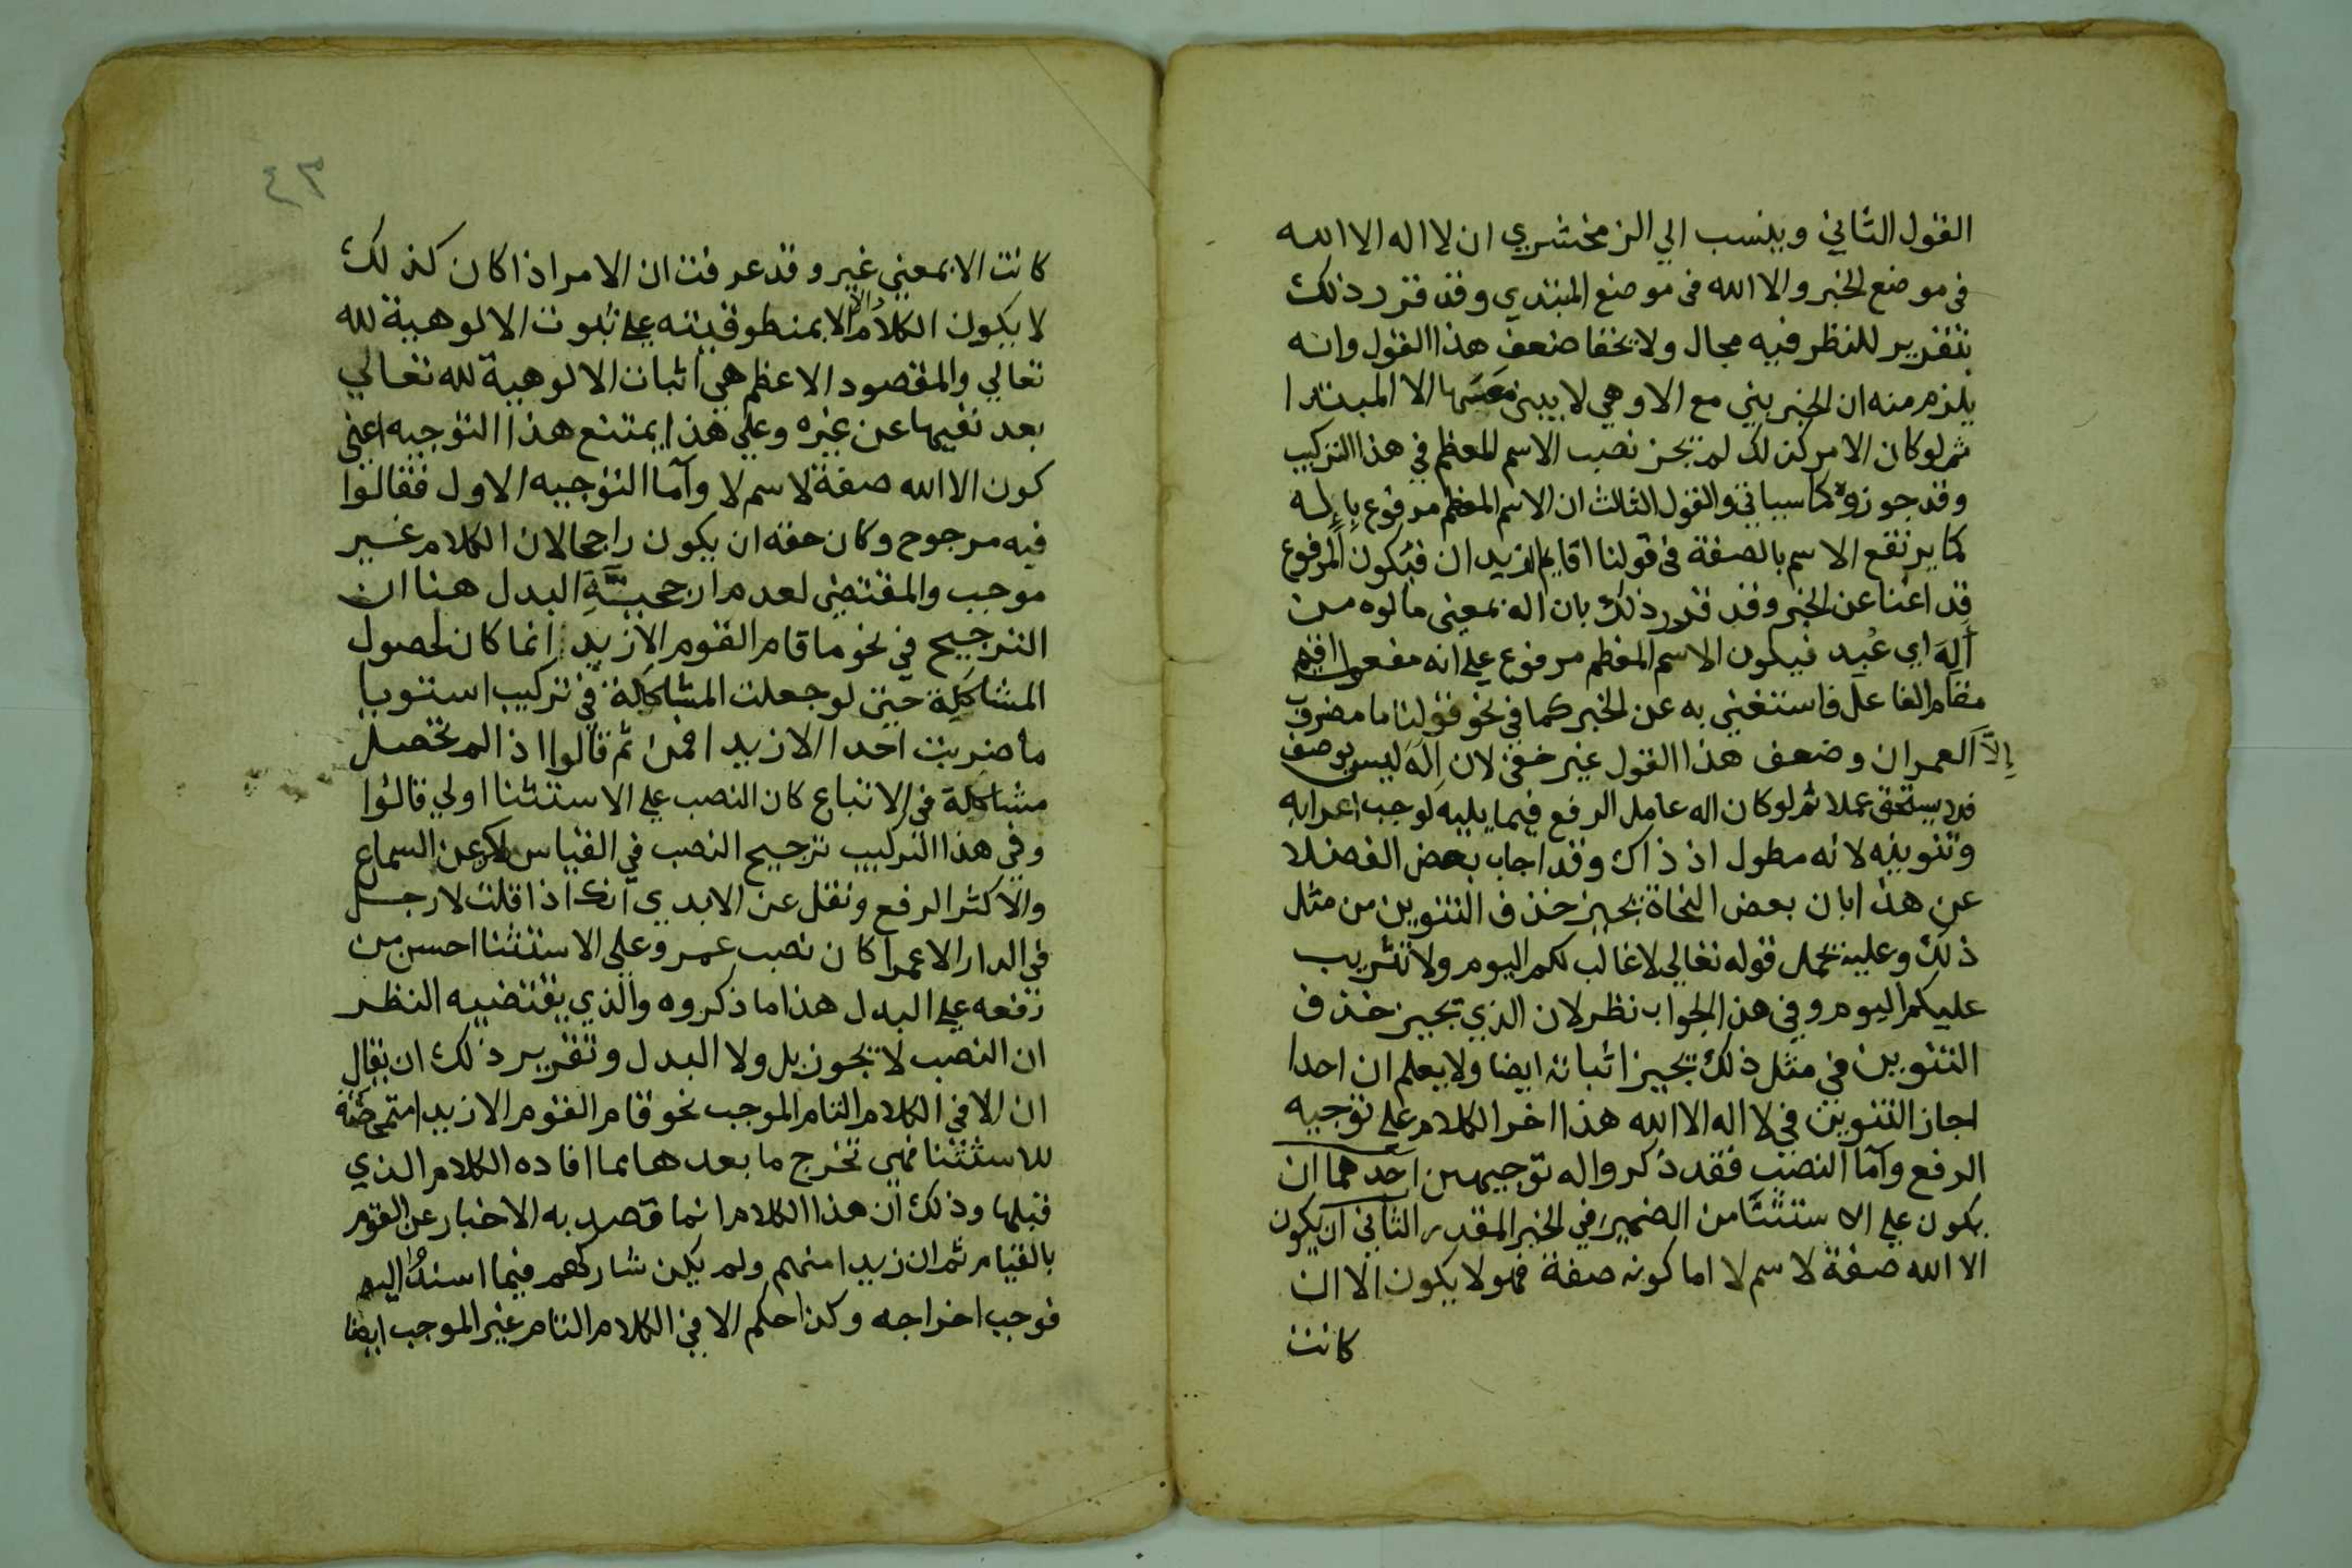 القول الثاني وينسب الي الزمخشري ان لا اله الا الله
في موضع الخبر والا الله في موضع المبتدي وقد قرر ذلك
بتقرير للنظر فيه مجال ولا يخفا ضعف هذا القول وانه
يلزم منه ان الخبر يبني مع الا وهي لا يبني معها الا المبتدا
ثم لو كان الامر كذلك لم يجز نصب الاسم المعظم في هذا التركيب
وقد جوزوه كما سياتي والقول الثالث ان الاسم المعظم مرفوع بإله
كما يرتفع الاسم بالصفة في قولنا اقايم الزيدان فيكون المرفوع
قد اغنا عن الخبر وقد قرر ذلك بان اله بمعني مالوه من
أَلِهَ اي عُبِد فيكون الاسم المعظم مرفوع علي انه مفعول اقيم
مقام الفاعل فاستغني به عن الخبر كما في نحو قولنا ما مضروب
إلَّا العمران وضعف هذا القول غير خفي لان إله ليس بوصف
فلا يستحق عملا ثم لو كان اله عامل الرفع فيما يليه لوجب اعرابه
وتنوينه لانه مطول اذ ذاك وقد اجاب بعض الفضلا
عن هذا بان بعض النحاة يجيز حذف التنوين من مثل
ذلك وعليه يحمل قوله تعالي لا غالب لكم اليوم ولا تثريب
عليكم اليوم وفي هذا الجواب نظر لان الذي يجيز حذف
التنوين في مثل ذلك يجيز اثباته ايضا ولا يعلم ان احدا
اجاز التنوين في لا اله الا الله هذا اخر الكلام علي توجيه
الرفع وآما النصب فقد ذكروا له توجيهين احدهما ان
يكون علي الاستثنا من الضمير في الخبر المقدر الثاني ان يكون
الا الله صفة لاسم لا اما كونه صفة فهو لا يكون الا ان
كانت
٤٣
كانت الا بمعني غير وقد عرفت ان الامر اذا كان كذلك
لا يكون الكلام دالا بمنطوقيته علي ثبوت الالوهية لله
تعالي والمقصود الاعظم هي اثبات الالوهية لله تعالي
بعد نفيها عن غيره وعلي هذا يمتنع هذا التوجيه اعني
كون الا الله صفة لاسم لا وآما التوجيه الاول فقالوا
فيه مرجوح وكان حقه ان يكون راجحا لان الكلام غير
موجب والمقتضي لعدم ارجحيَّةِ البدل هنا ان
الترجيح في نحو ما قام القوم الا زيد انما كان لحصول
المشاكلة حيتي لو جعلت المشاكلة في تركيب استويا
ما ضربت احدا الا زيدا فمن ثم قالوا اذا لم تحصل
مشاكلة في الاتباع كان النصب علي الاستثنا اولي قالوا
وفي هذا التركيب ترجيح النصب في القياس لكن السماع
والاكثر الرفع ونقل عن الابدي انك اذا قلت لا رجل
في الدار الا عمرا كان نصب عمرو علي الاستثنا احسن من
رفعه علي البدل هذا ما ذكروه والذي يقتضيه النظر
ان النصب لا يجوز بل ولا البدل وتقرير ذلك ان يقال
ان الا في الكلام التام الموجب نحو قام القوم الا زيدا متمحضة
للاستثنا فهي تخرج ما بعدها مما افاده الكلام الذي
قبلها وذلك ان هذا الكلام انما قصد به الاخبار عن القوم
بالقيام ثم ان زيدا منهم ولم يكن شاركهم فيما اسند اليهم
فوجب اخراجه وكذا حكم الا في الكلام التام غير الموجب ايضا